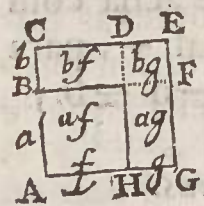 C D E
b bf bg
B F
a af ag
f g
A H G